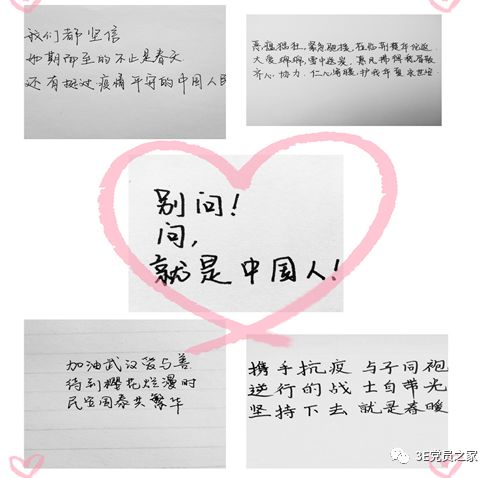 我们都坚信
如期而至的不止是春天
还有挺过疫情平安的中国人民
恶疫猖狂,紧急驰援,
大爱绵绵,雪中送炭,
齐心协力,仁心 护我华夏
别问!
问,
就是中国人!
加油武汉爱与善
待到樱花烂漫时
民安国泰共繁华
携手抗疫 与子同袍
逆行的战士自带光
坚持下去就是春暖
3E党员之家